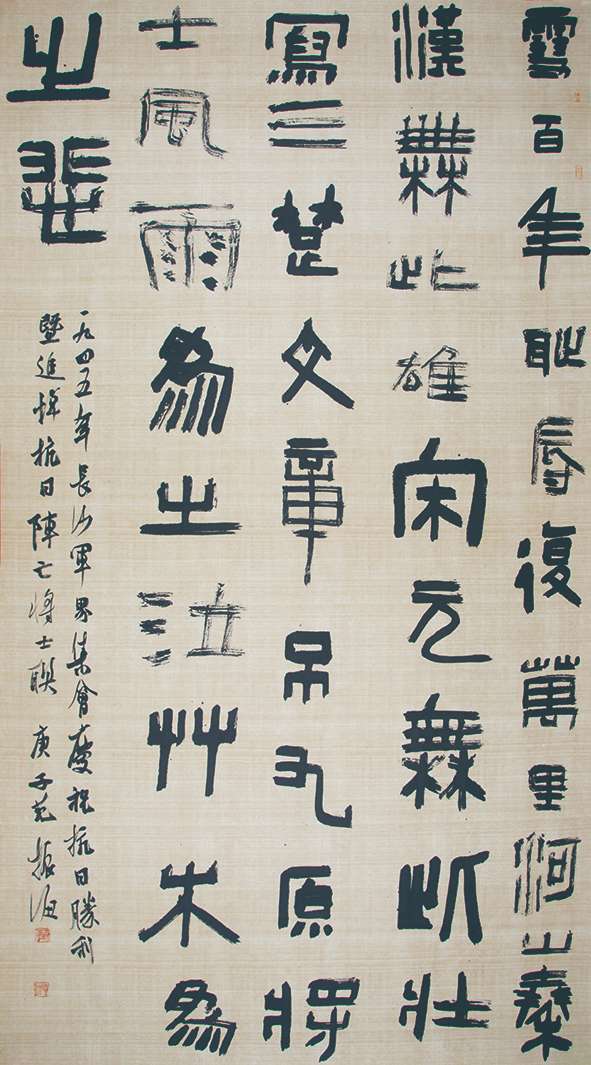 雪百年耻辱復萬里河山秦
漢無此雄宋元無此壯
寫三楚文章吊九原將
士風雨為之泣艸木為
之悲
一九四五年長沙軍界集會慶祝抗日勝利
暨追悼抗日陣亡將士聯 庚子 振